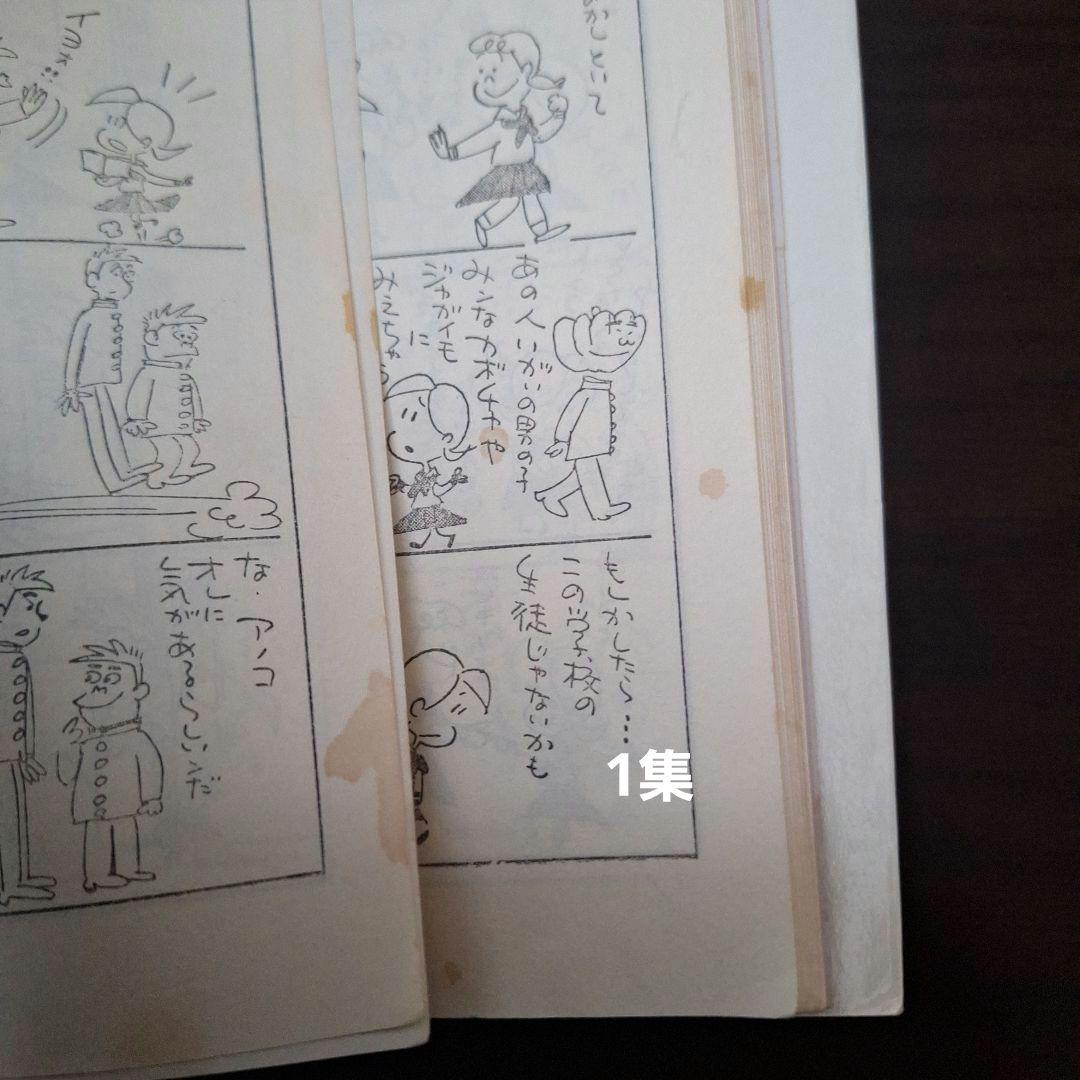 あの人いがいの男の子
みンなカボチャや
ジャガイモ
に
みえちゃう
もしかしたら…
この学校の
生徒じゃないかも
な・アノコ
オレに
気があるらしいンだ
1集